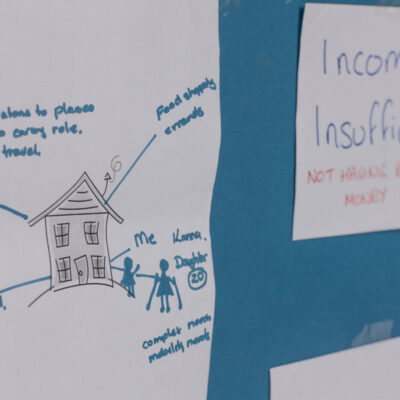 alone to places
caring role.
travel.
Food shopping
errands
Me Kanna.
Daughter
20
complex needs
mobility needs
Incom
Insuffic
NOT HAVING E
MONEY